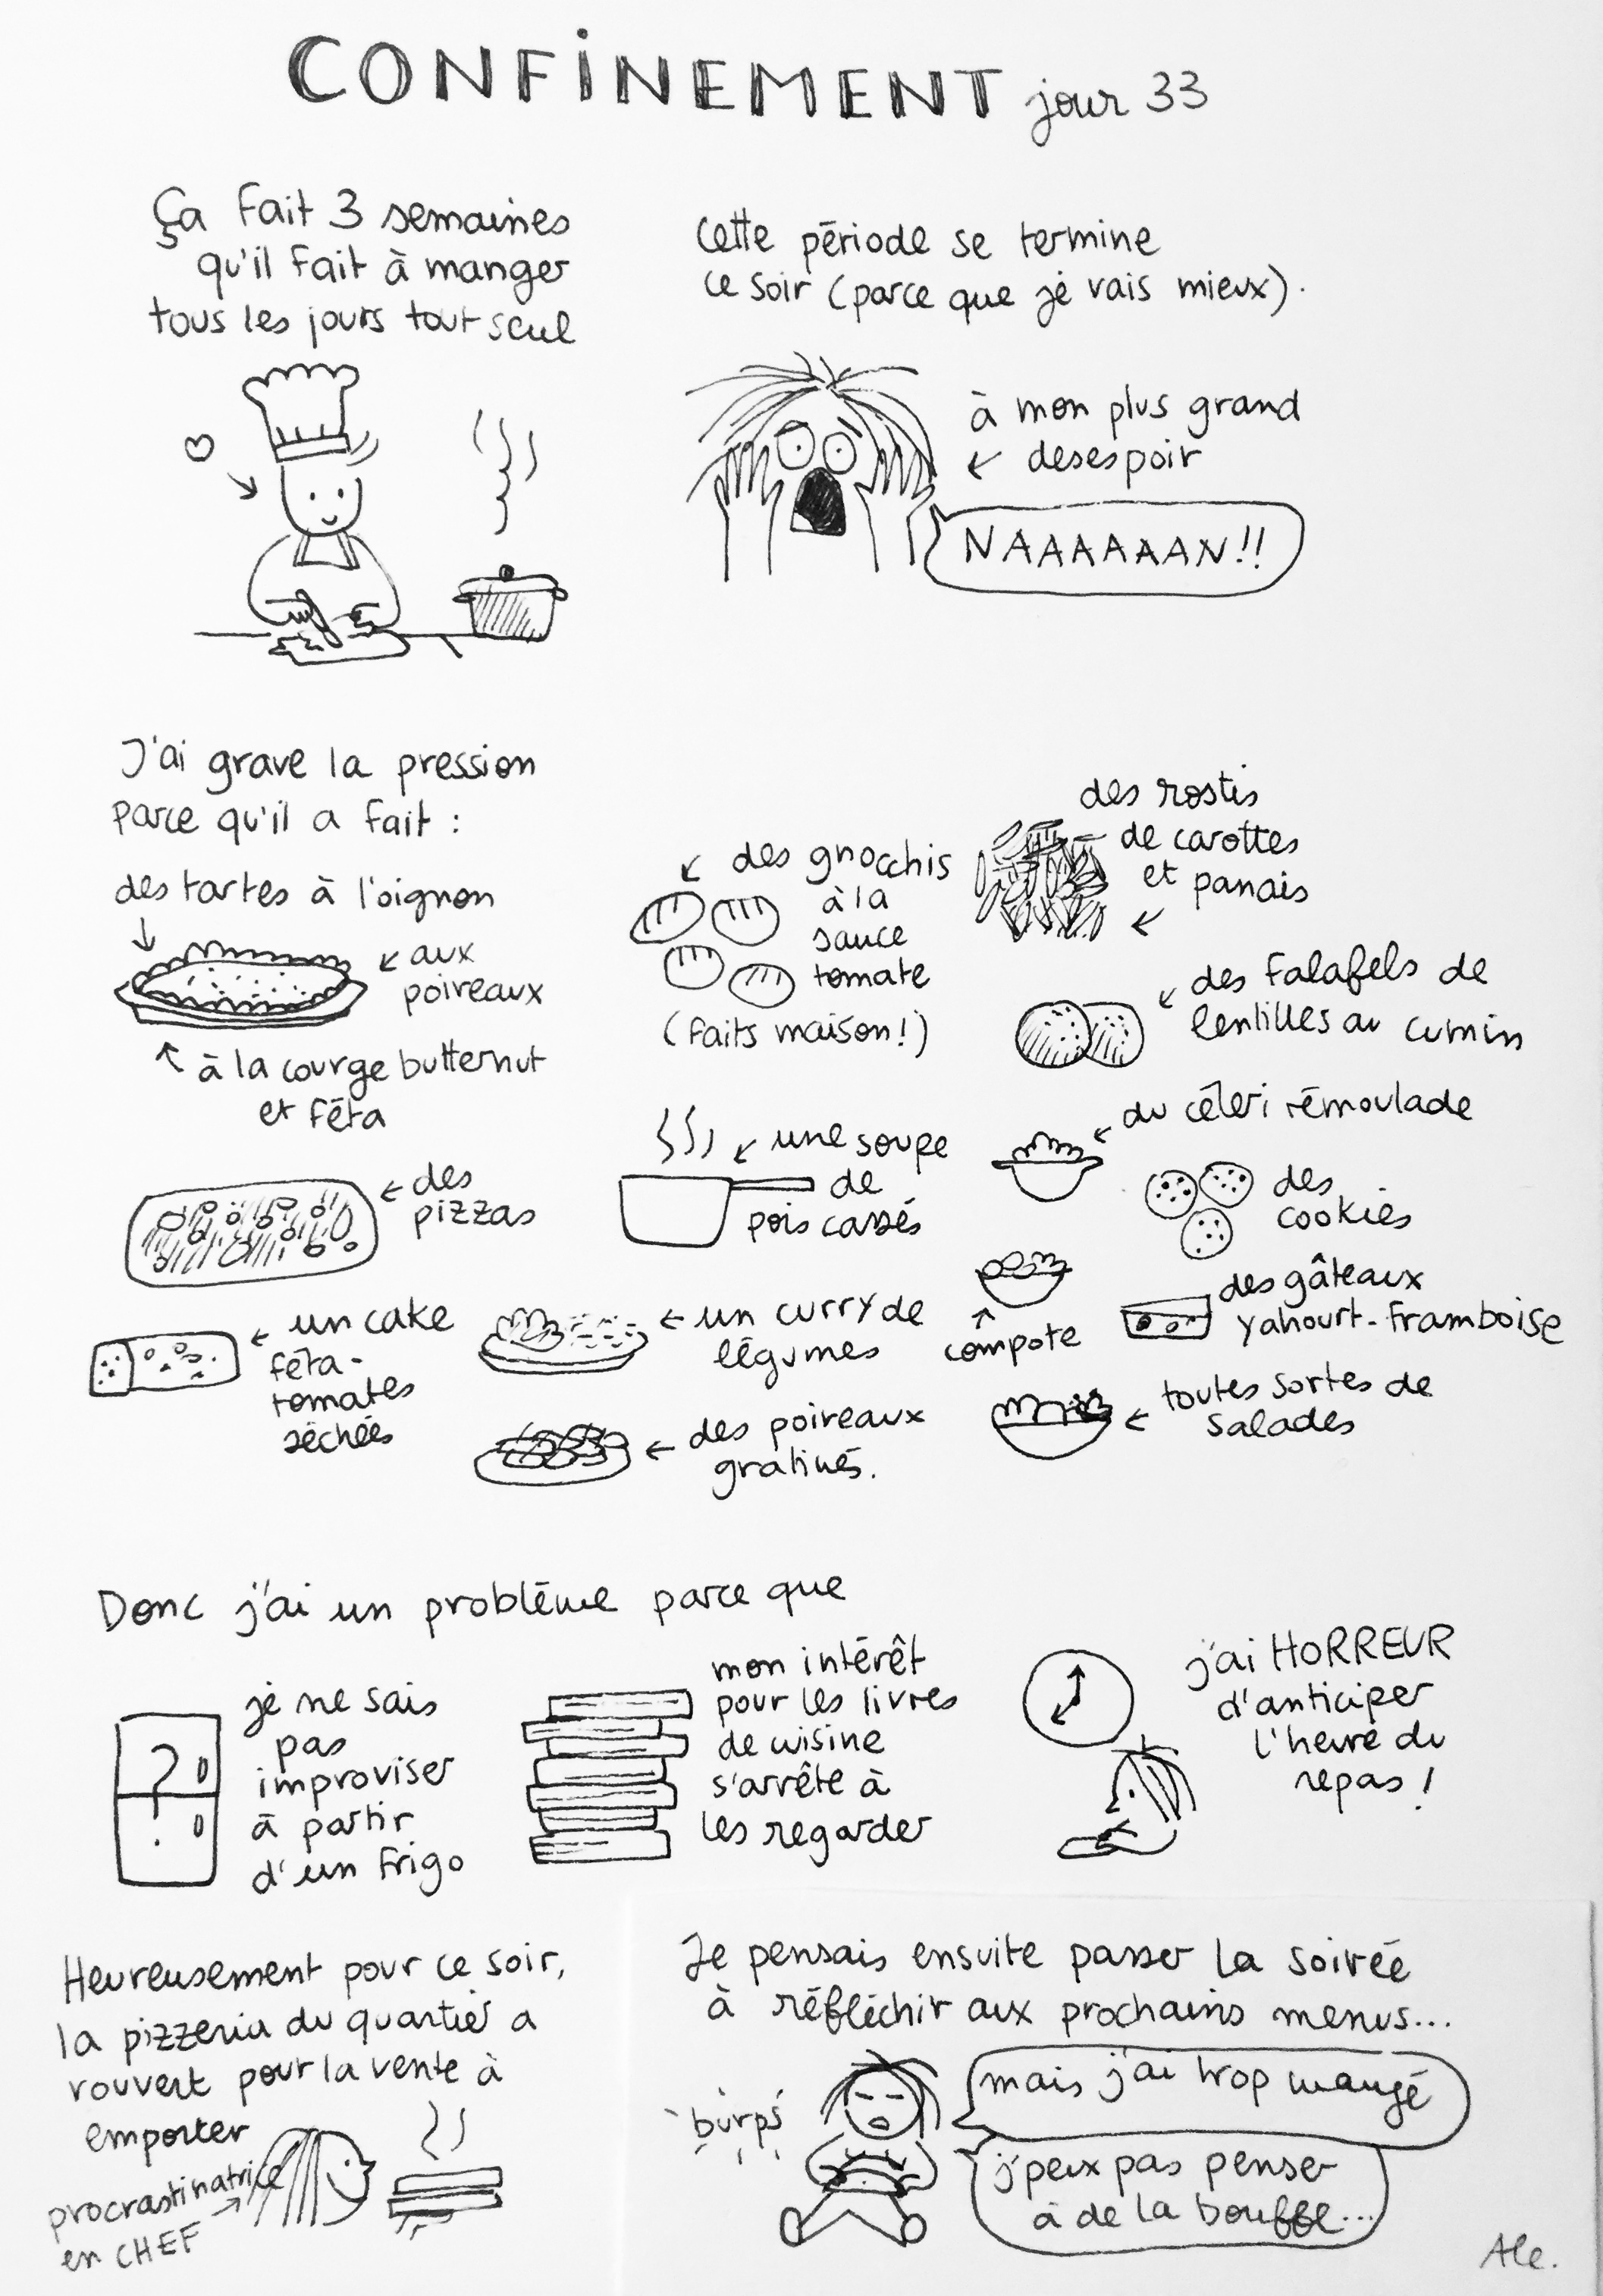 CONFINEMENT jour 33
Ça fait 3 semaines
qu'il fait à manger
tous les jours tout seul
Cette période se termine
ce soir (parce que je vais mieux).
à mon plus grand
desespoir
NAAAAAAN!!
J'ai grave la pression
parce qu'il a fait :
des tartes à l'oignon
aux
poireaux
à la courge butternut
et féta
des
pizzas
un cake
féta-
tomates
séchées
des gnocchis
à la
sauce
tomate
(faits maison!)
une soupe
de
pois cassés
un curry de
légumes
des poireaux
gratinés.
des rostis
de carottes
et panais
des falafels de
lentilles au cumin
du céleri rémoulade
des
cookies
compote
des gâteaux
yahourt-framboise
toutes sortes de
salades
Donc j'ai un problème parce que
?
je ne sais
pas
improviser
à partir
d'un frigo
mon intérêt
pour les livres
de cuisine
s'arrête à
les regarder
j'ai HORREUR
d'anticiper
l'heure du
repas !
Heureusement pour ce soir,
la pizzeria du quartier a
rouvert pour la vente à
emporter
procrastinatrice
en CHEF
Je pensais ensuite passer la soirée
à réfléchir aux prochains menus...
burps
mais j'ai trop mangé
j'peux pas penser
à de la bouffe...
Ale.